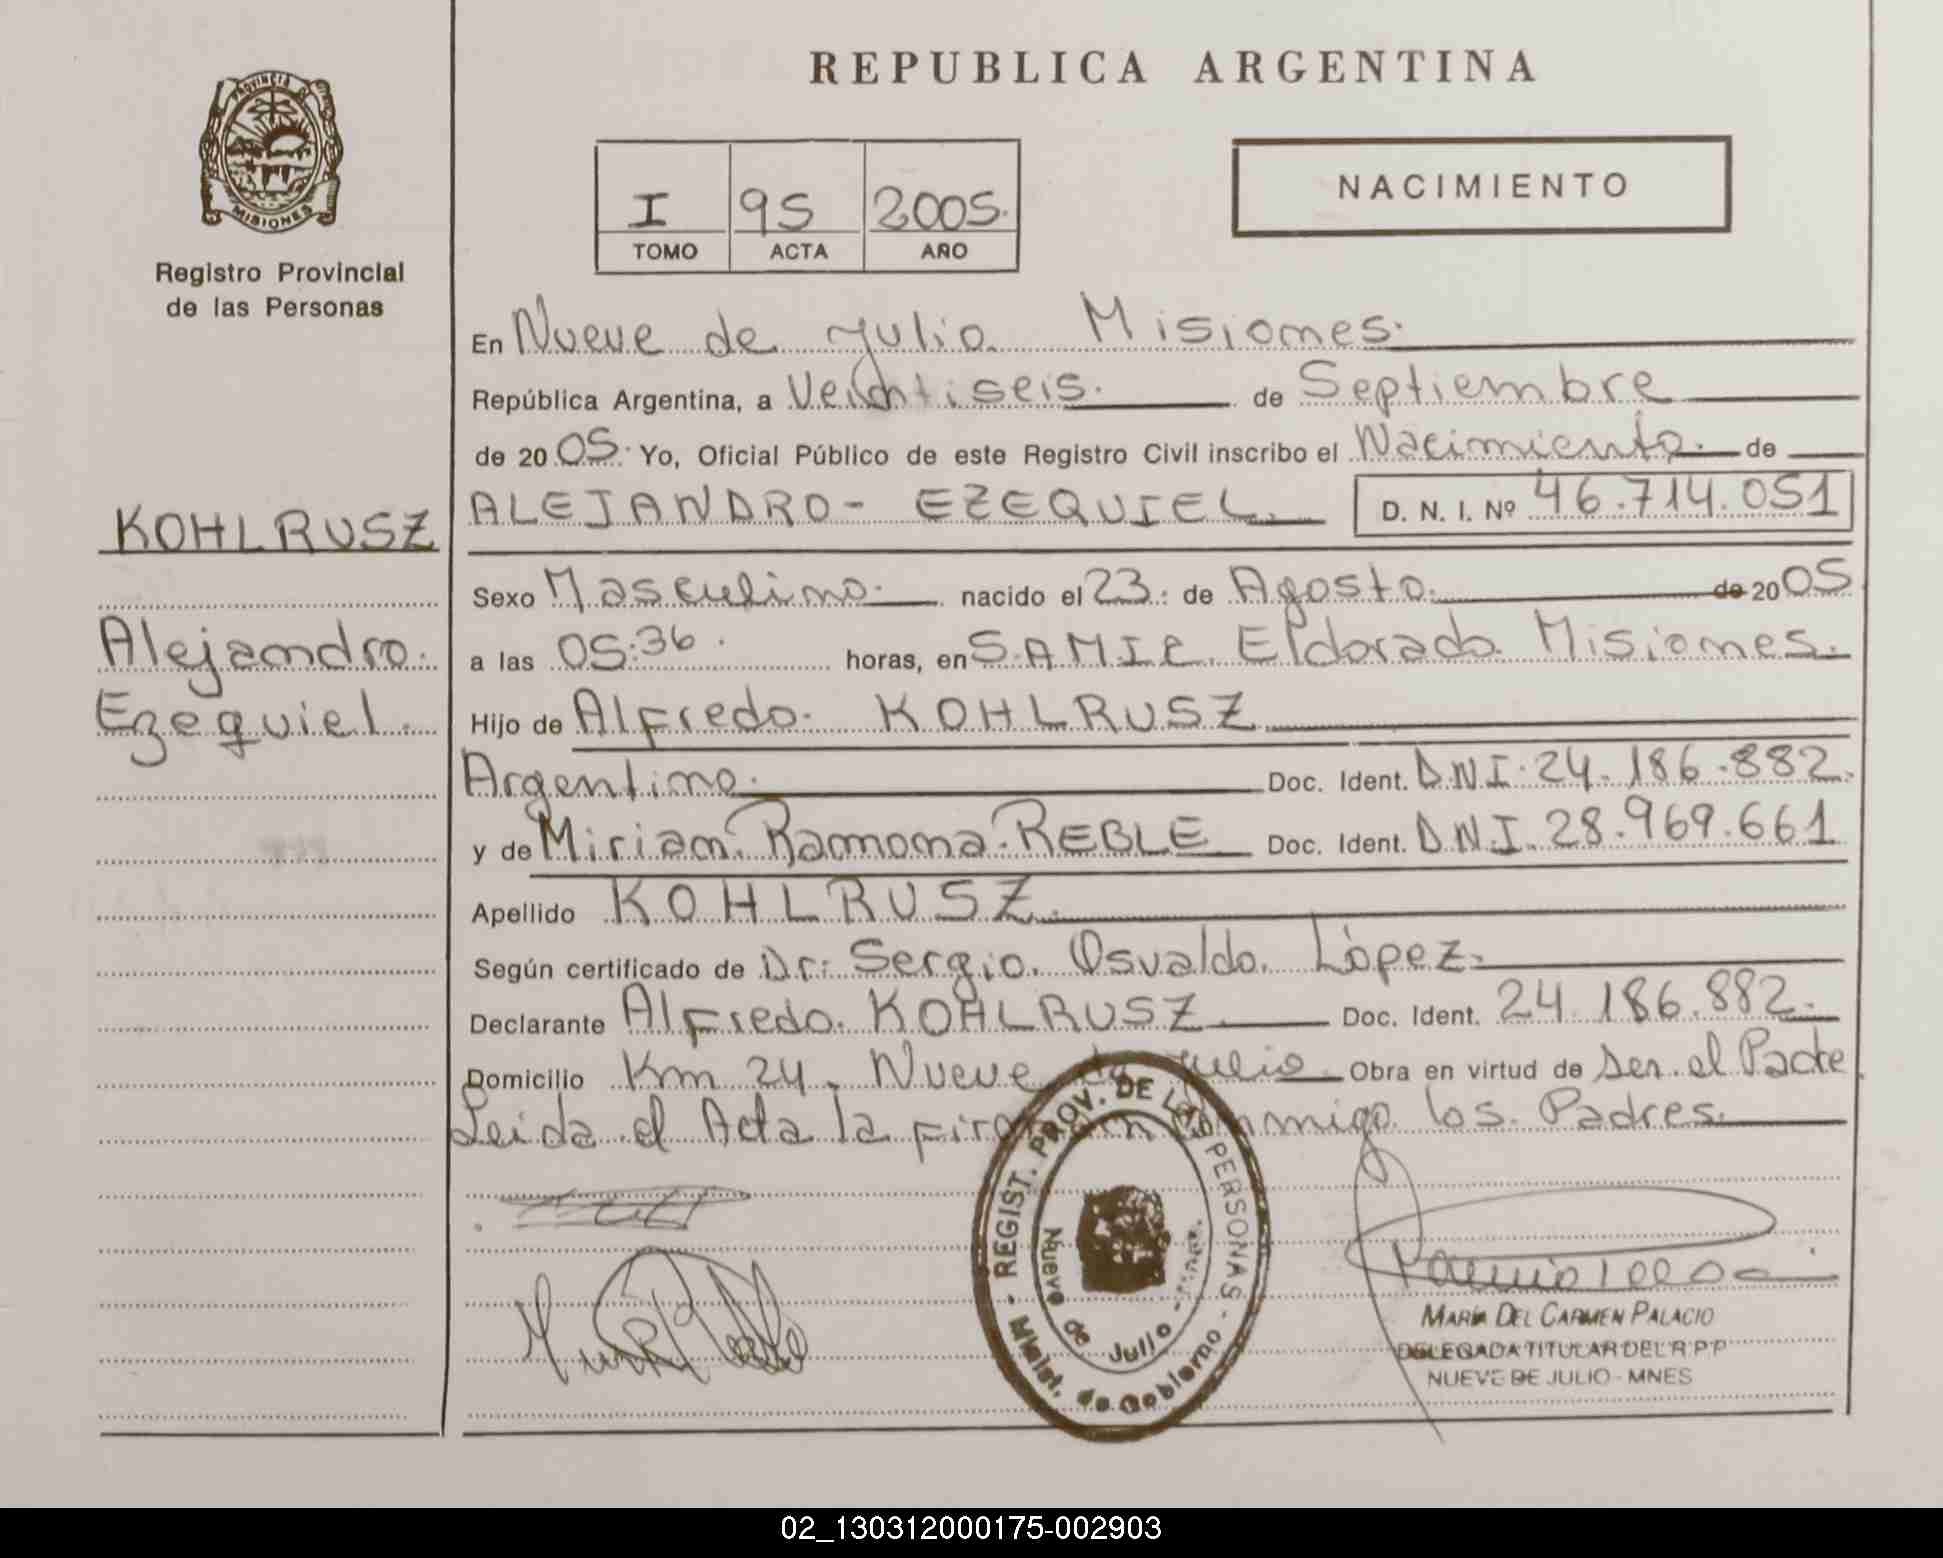 REPUBLICA ARGENTINA
PROVINCIA DE
MISIONES
Registro Provincial
de las Personas
I 95 2005.
TOMO ACTA AÑO
NACIMIENTO
En Nueve de Julio. Misiones.
República Argentina, a Veintiseis. de Septiembre
de 2005. Yo, Oficial Público de este Registro Civil inscribo el Nacimiento. de
KOHLRUSZ
ALEJANDRO- EZEQUIEL. D. N. I. Nº 46.714.051
Sexo Masculino. nacido el 23. de Agosto. de 2005
Alejandro.
a las 05:36. horas, en S.AMIC. Eldorado Misiones.
Ezequiel.
Hijo de Alfredo. KOHLRUSZ
Argentino. Doc. Ident. D.N.I. 24.186.882.
y de Miriam. Ramona. REBLE Doc. Ident. D.N.I. 28.969.661
Apellido KOHLRUSZ.
Según certificado de Dr: Sergio. Osvaldo. López.
Declarante Alfredo. KOHLRUSZ Doc. Ident. 24.186.882.
Domicilio Km 24. Nueve de Julio. Obra en virtud de Ser el Padre.
Leida el Acta la firman conmigo los Padres.
REGIST. PROV. DE LAS PERSONAS - Minist. de Gobierno -
Nueve de Julio -
MARÍA DEL CARMEN PALACIO
DELEGADA TITULAR DEL R.P.P
NUEVE DE JULIO - MNES
02_130312000175-002903